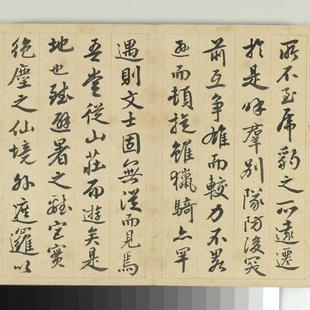 所不至席豹之所遠遷
於是呼羣別隊防後突
前互爭雄而較力不畏
而頓從雖獵騎亦罕
遇則文士固無從而見焉
吾嘗從山莊而遊矣是
地也雖避暑之離宮實
絕塵之仙境外匝邏以